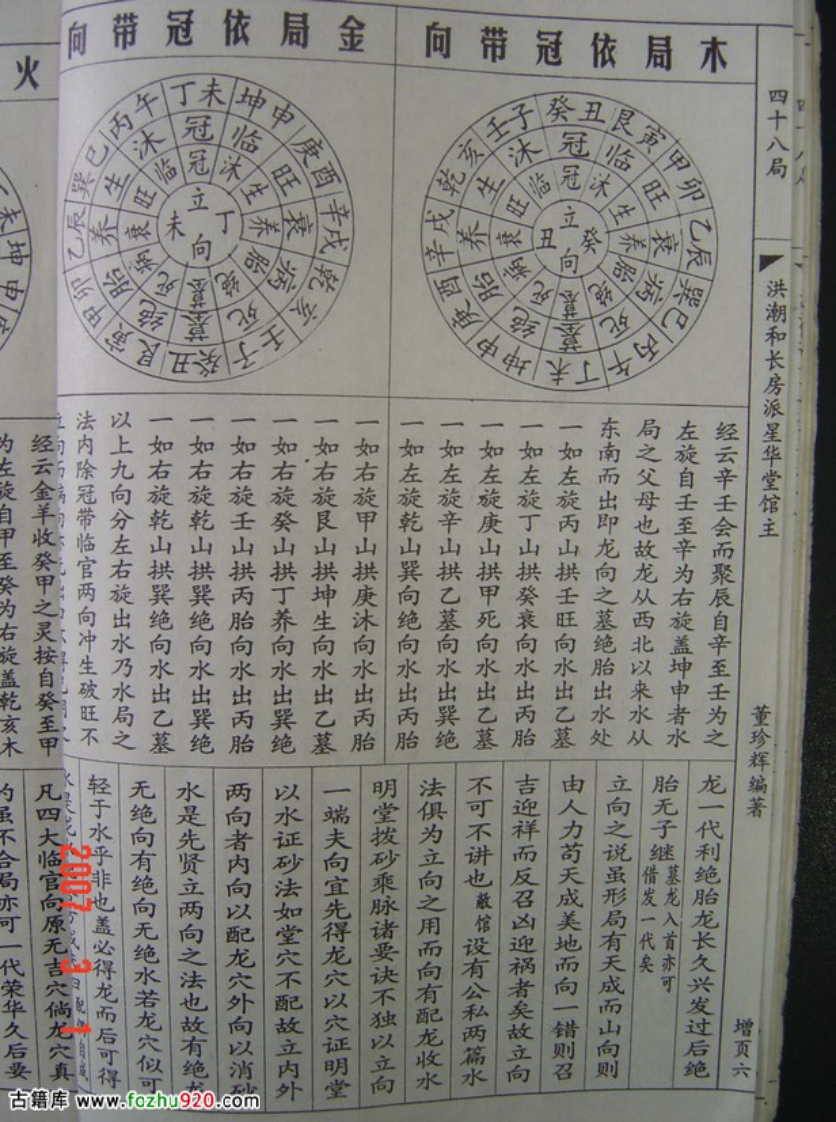 四十八局
洪潮和长房派星华堂馆主
董珍辉编著
增页六
木局依冠带向
癸丑 艮寅 甲卯 乙辰 巽巳 丙午 丁未 坤申 庚酉 辛戌 乾亥 壬子
冠 临 旺 衰 病 死 墓 绝 胎 养 生 沐
冠 沐 生 养 胎 绝 墓 死 病 衰 旺 临
立向
癸
丑
金局依冠带向
丁未 坤申 庚酉 辛戌 乾亥 壬子 癸丑 艮寅 甲卯 乙辰 巽巳 丙午
冠 临 旺 衰 病 死 墓 绝 胎 养 生 沐
冠 沐 生 养 胎 绝 墓 死 病 衰 旺 临
立向
丁
未
火
经云辛壬会而聚辰自辛至壬为之
左旋自壬至辛为右旋盖坤申者水
局之父母也故龙从西北以来水从
东南而出即龙向之墓绝胎出水处
一如左旋丙山拱壬旺向水出乙墓
一如左旋丁山拱癸衰向水出丙胎
一如左旋庚山拱甲死向水出乙墓
一如左旋辛山拱乙墓向水出巽绝
一如左旋乾山巽向绝向水出丙胎
一如右旋甲山拱庚沐向水出丙胎
一如右旋艮山拱坤生向水出乙墓
一如右旋癸山拱丁养向水出巽绝
一如右旋壬山拱丙胎向水出丙胎
一如右旋乾山拱巽绝向水出巽绝
一如右旋乾山拱巽绝向水出乙墓
以上九向分左右旋出水乃水局之
法内除冠带临官两向冲生破旺不
经云金羊收癸甲之灵按自癸至甲
为左旋自甲至癸为右旋盖乾亥木
龙一代利绝胎龙长久兴发过后绝
胎无子继墓龙入首亦可借发一代矣
立向之说虽形局有天成而山向则
由人力苟天成美地而向一错则召
吉迎祥而反召凶迎祸者矣故立向
不可不讲也敝馆设有公私两篇水
法俱为立向之用而向有配龙收水
明堂拨砂乘脉诸要诀不独以立向
一端夫向宜先得龙穴以穴证明堂
以水证砂法如堂穴不配故立内外
两向者内向以配龙穴外向以消砂
水是先贤立两向之法也故有绝龙
无绝向有绝向无绝水若龙穴似可
轻于水乎非也盖必得龙而后可得
凡四大临官向原无吉穴倘龙穴真
的虽不合局亦可一代荣华久后要
2007 3 1
古籍库 www.fozhu920.com